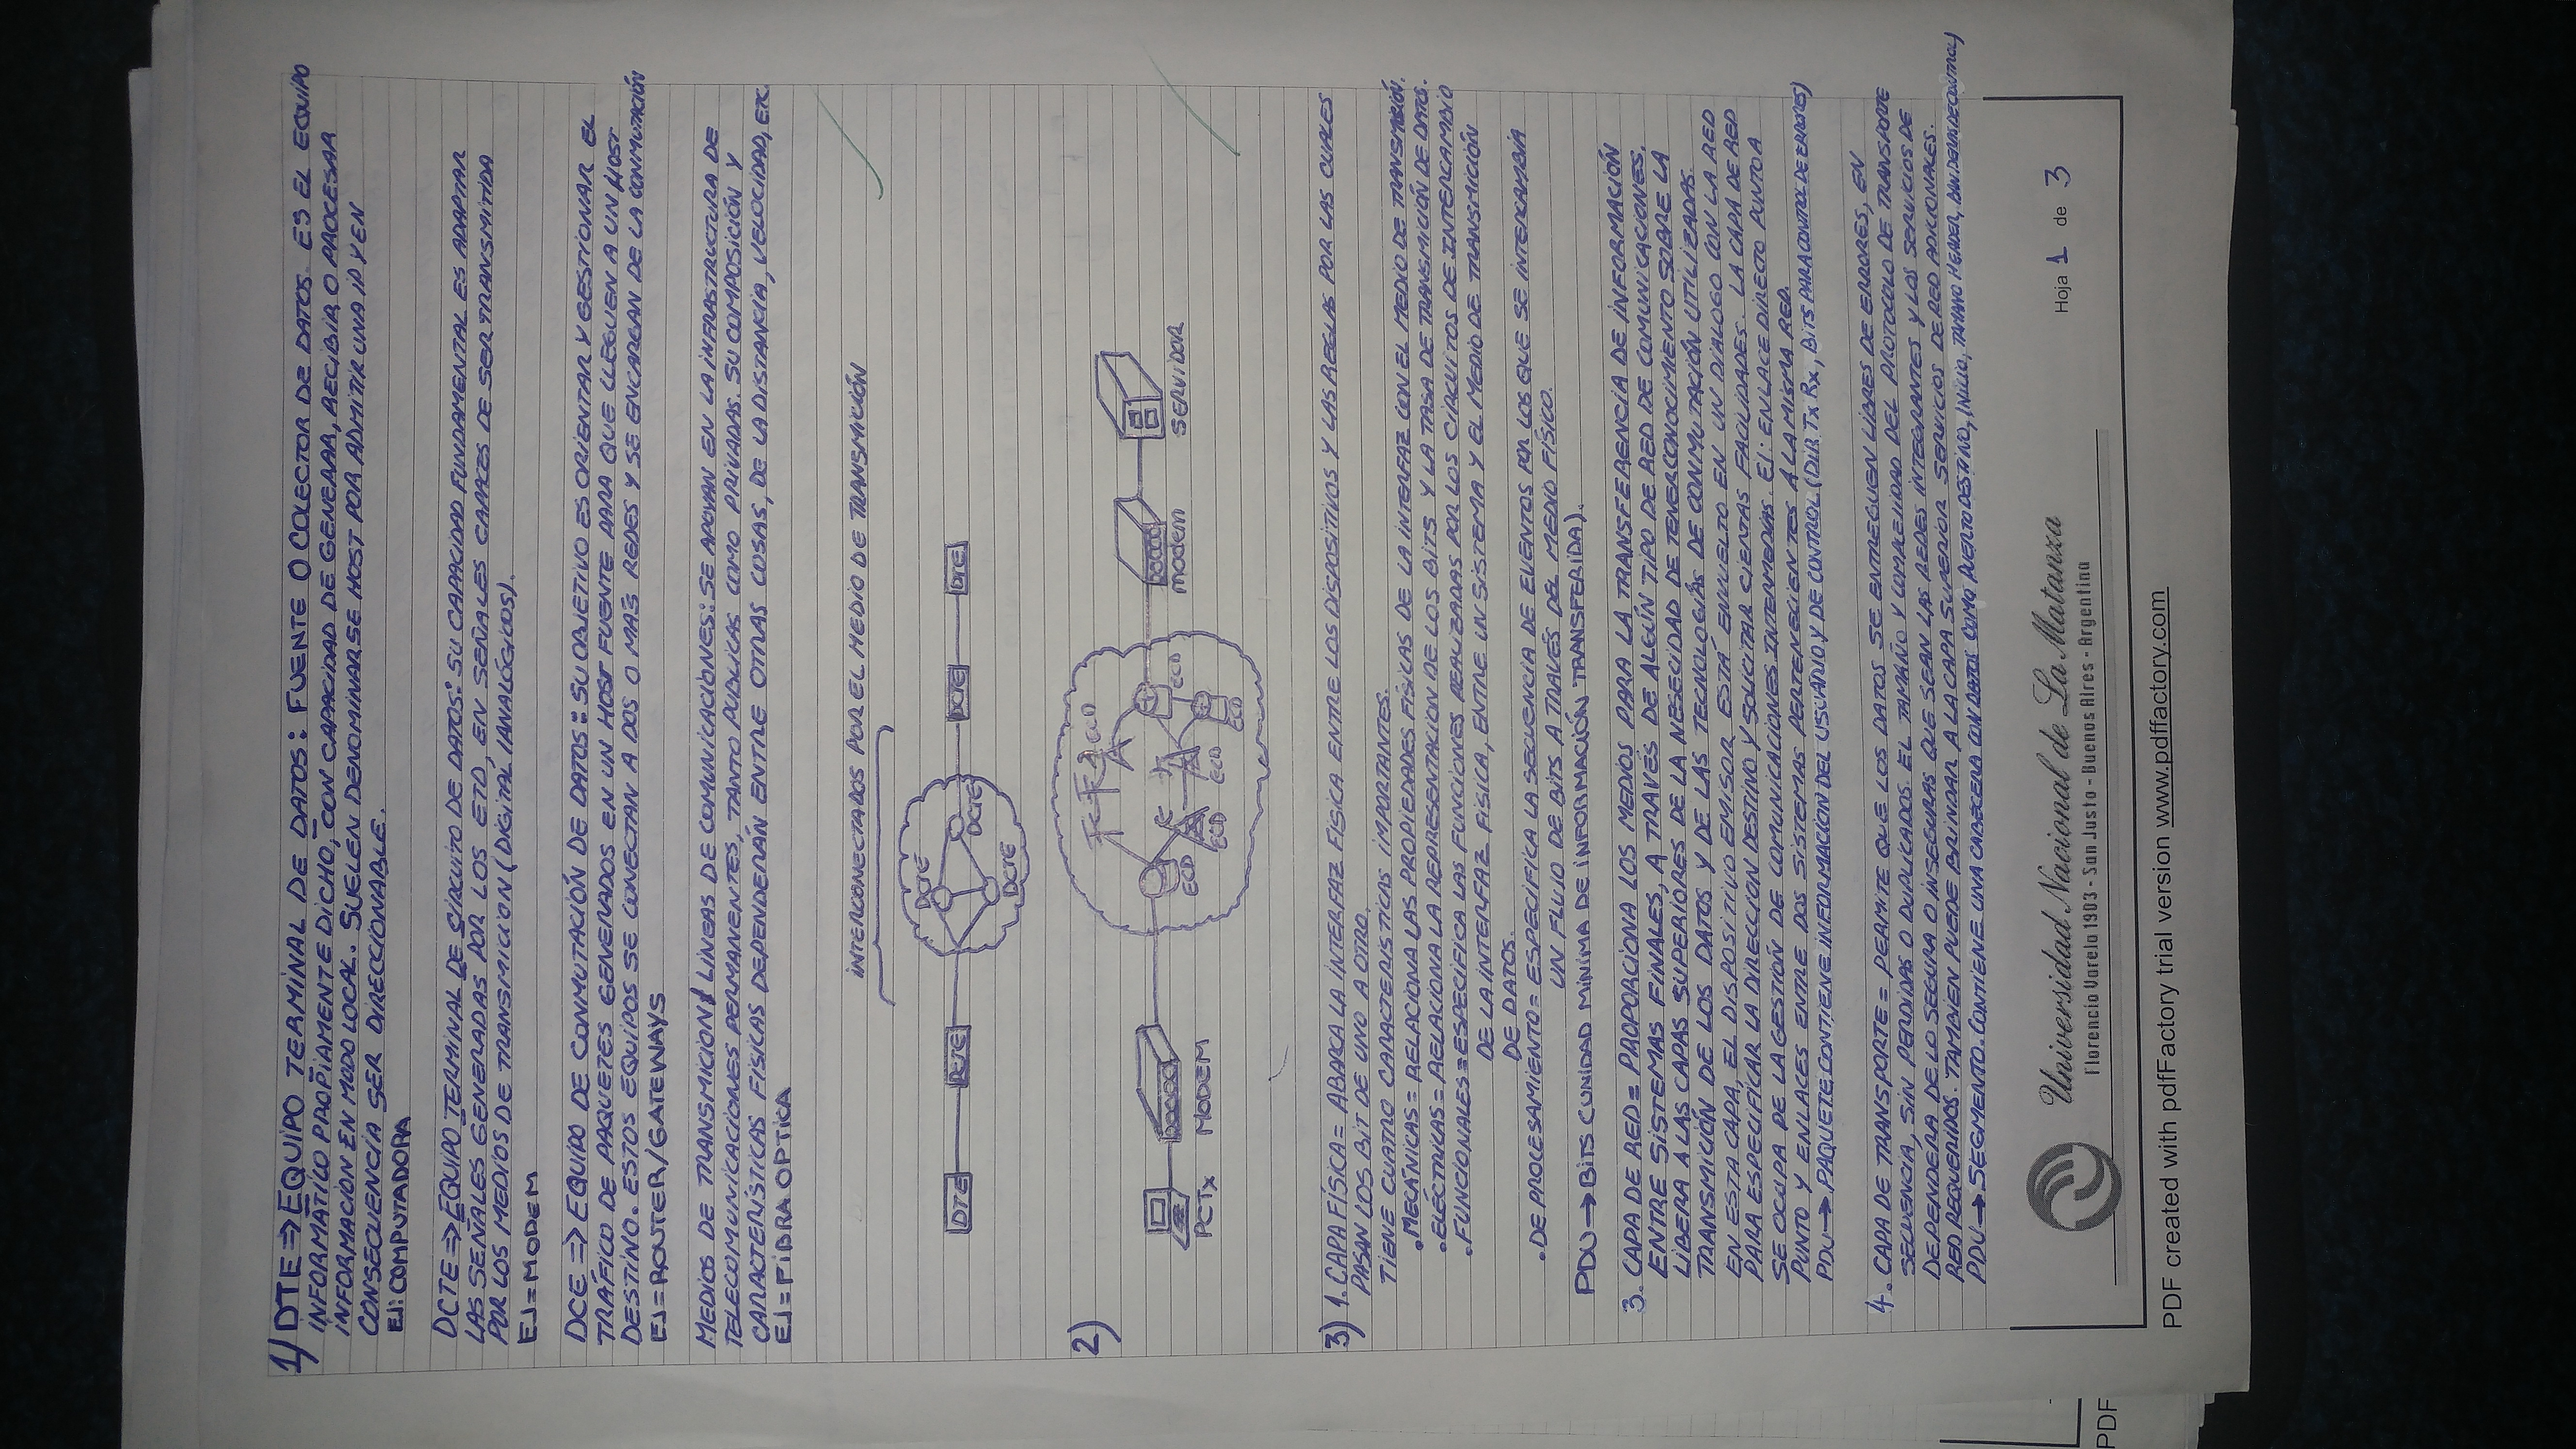 1) DTE ⇒ EQUIPO TERMINAL DE DATOS: FUENTE O COLECTOR DE DATOS. ES EL EQUIPO
INFORMÁTICO PROPIAMENTE DICHO, CON CAPACIDAD DE GENERAR, RECIBIR O PROCESAR
INFORMACIÓN EN MODO LOCAL. SUELEN DENOMINARSE HOST POR ADMITIR UNA IP Y EN
CONSECUENCIA SER DIRECCIONABLE.
EJ: COMPUTADORA
DCTE ⇒ EQUIPO TERMINAL DE CIRCUITO DE DATOS: SU CAPACIDAD FUNDAMENTAL ES ADAPTAR
LAS SEÑALES GENERADAS POR LOS ETD, EN SEÑALES CAPACES DE SER TRANSMITIDA
POR LOS MEDIOS DE TRANSMICION (DIGITAL/ANALÓGICOS).
EJ=MODEM
DCE ⇒ EQUIPO DE CONMUTACIÓN DE DATOS: SU OBJETIVO ES ORIENTAR Y GESTIONAR EL
TRÁFICO DE PAQUETES GENERADOS EN UN HOST FUENTE PARA QUE LLEGUEN A UN HOST
DESTINO. ESTOS EQUIPOS SE CONECTAN A DOS O MAS REDES Y SE ENCARGAN DE LA CONMUTACIÓN
EJ=ROUTER/GATEWAYS
MEDIOS DE TRANSMICION/ LÍNEAS DE COMUNICACIONES: SE APOYAN EN LA INFRASTRUCTURA DE
TELECOMUNICACIONES PERMANENTES, TANTO PUBLICAS COMO PRIVADAS. SU COMPOSICIÓN Y
CARACTERÍSTICAS FÍSICAS DEPENDERÁN ENTRE OTRAS COSAS, DE LA DISTANCIA, VELOCIDAD, ETC.
EJ=FIBRA OPTICA
INTERCONECTADOS POR EL MEDIO DE TRANSMICIÓN
DCTE
DTE DCTE DCTE DCTE DTE
DCTE
2)
ECD
ECD ECD ECD ECD ECD
PCTx MODEM modem SERVIDOR
3) 1. CAPA FÍSICA = ABARCA LA INTERFAZ FISICA ENTRE LOS DISPOSITIVOS Y LAS REGLAS POR LAS CUALES
PASAN LOS BIT DE UNO A OTRO.
TIENE CUATRO CARACTERISTICAS IMPORTANTES.
• MECÁNICAS = RELACIONA LAS PROPIEDADES FÍSICAS DE LA INTERFAZ CON EL MEDIO DE TRANSMISIÓN.
• ELÉCTRICAS = RELACIONA LA REPRESENTACION DE LOS BITS Y LA TASA DE TRANSMICIÓN DE DATOS.
• FUNCIONALES = ESPECIFICA LAS FUNCIONES REALIZADAS POR LOS CIRCUITOS DE INTERCAMBIO
DE LA INTERFAZ FISICA, ENTRE UN SISTEMA Y EL MEDIO DE TRANSMICIÓN
DE DATOS.
• DE PROCESAMIENTO = ESPECIFICA LA SECUENCIA DE EVENTOS POR LOS QUE SE INTERCAMBIA
UN FLUJO DE BITS A TRAVÉS DEL MEDIO FÍSICO.
PDU → BITS (UNIDAD MÍNIMA DE INFORMACIÓN TRANSFERIDA).
3. CAPA DE RED = PROPORCIONA LOS MEDIOS PARA LA TRANSFERENCIA DE INFORMACIÓN
ENTRE SISTEMAS FINALES, A TRAVÉS DE ALGÚN TIPO DE RED DE COMUNICACIONES.
LIBERA A LAS CAPAS SUPERIORES DE LA NESECIDAD DE TENER CONOCIMIENTO SOBRE LA
TRANSMICIÓN DE LOS DATOS Y DE LAS TECNOLOGÍAS DE CONMUTACIÓN UTILIZADAS.
EN ESTA CAPA, EL DISPOSITIVO EMISOR ESTÁ ENVUELTO EN UN DIALOGO CON LA RED
PARA ESPECIFICAR LA DIRECCION DESTINO Y SOLICITAR CIERTAS FACILIDADES. LA CAPA DE RED
SE OCUPA DE LA GESTIÓN DE COMUNICACIONES INTERMEDIAS. EJ: ENLACE DIRECTO PUNTO A
PUNTO Y ENLACES ENTRE DOS SISTEMAS PERTENECIENTES A LA MISMA RED.
PDU → PAQUETE CONTIENE INFORMACION DEL USUARIO Y DE CONTROL (DIR Tx Rx, BITS PARA CONTROL DE ERRORES)
4. CAPA DE TRANSPORTE = PERMITE QUE LOS DATOS SE ENTREGUEN LIBRES DE ERRORES, EN
SECUENCIA, SIN PERDIDAS O DUPLICADOS. EL TAMAÑO Y COMPLEJIDAD DEL PROTOCOLO DE TRANSPORTE
DEPENDERA DE LO SEGURA O INSEGURAS QUE SEAN LAS REDES INTEGRANTES Y LOS SERVICIOS DE
RED REQUERIDOS. TAMBIEN PUEDE BRINDAR A LA CAPA SUPERIOR SERVICIOS DE RED ADICIONALES.
PDU → SEGMENTO. CONTIENE UNA CABECERA CON DATOS COMO PUERTO DESTINO, INICIO, TAMAÑO HEADER, BANDERAS DE CONTROL)
Universidad Nacional de La Matanza
Florencio Varela 1903 - San Justo - Buenos Aires - Argentina
Hoja 1 de 3
PDF created with pdfFactory trial version www.pdffactory.com
PDF